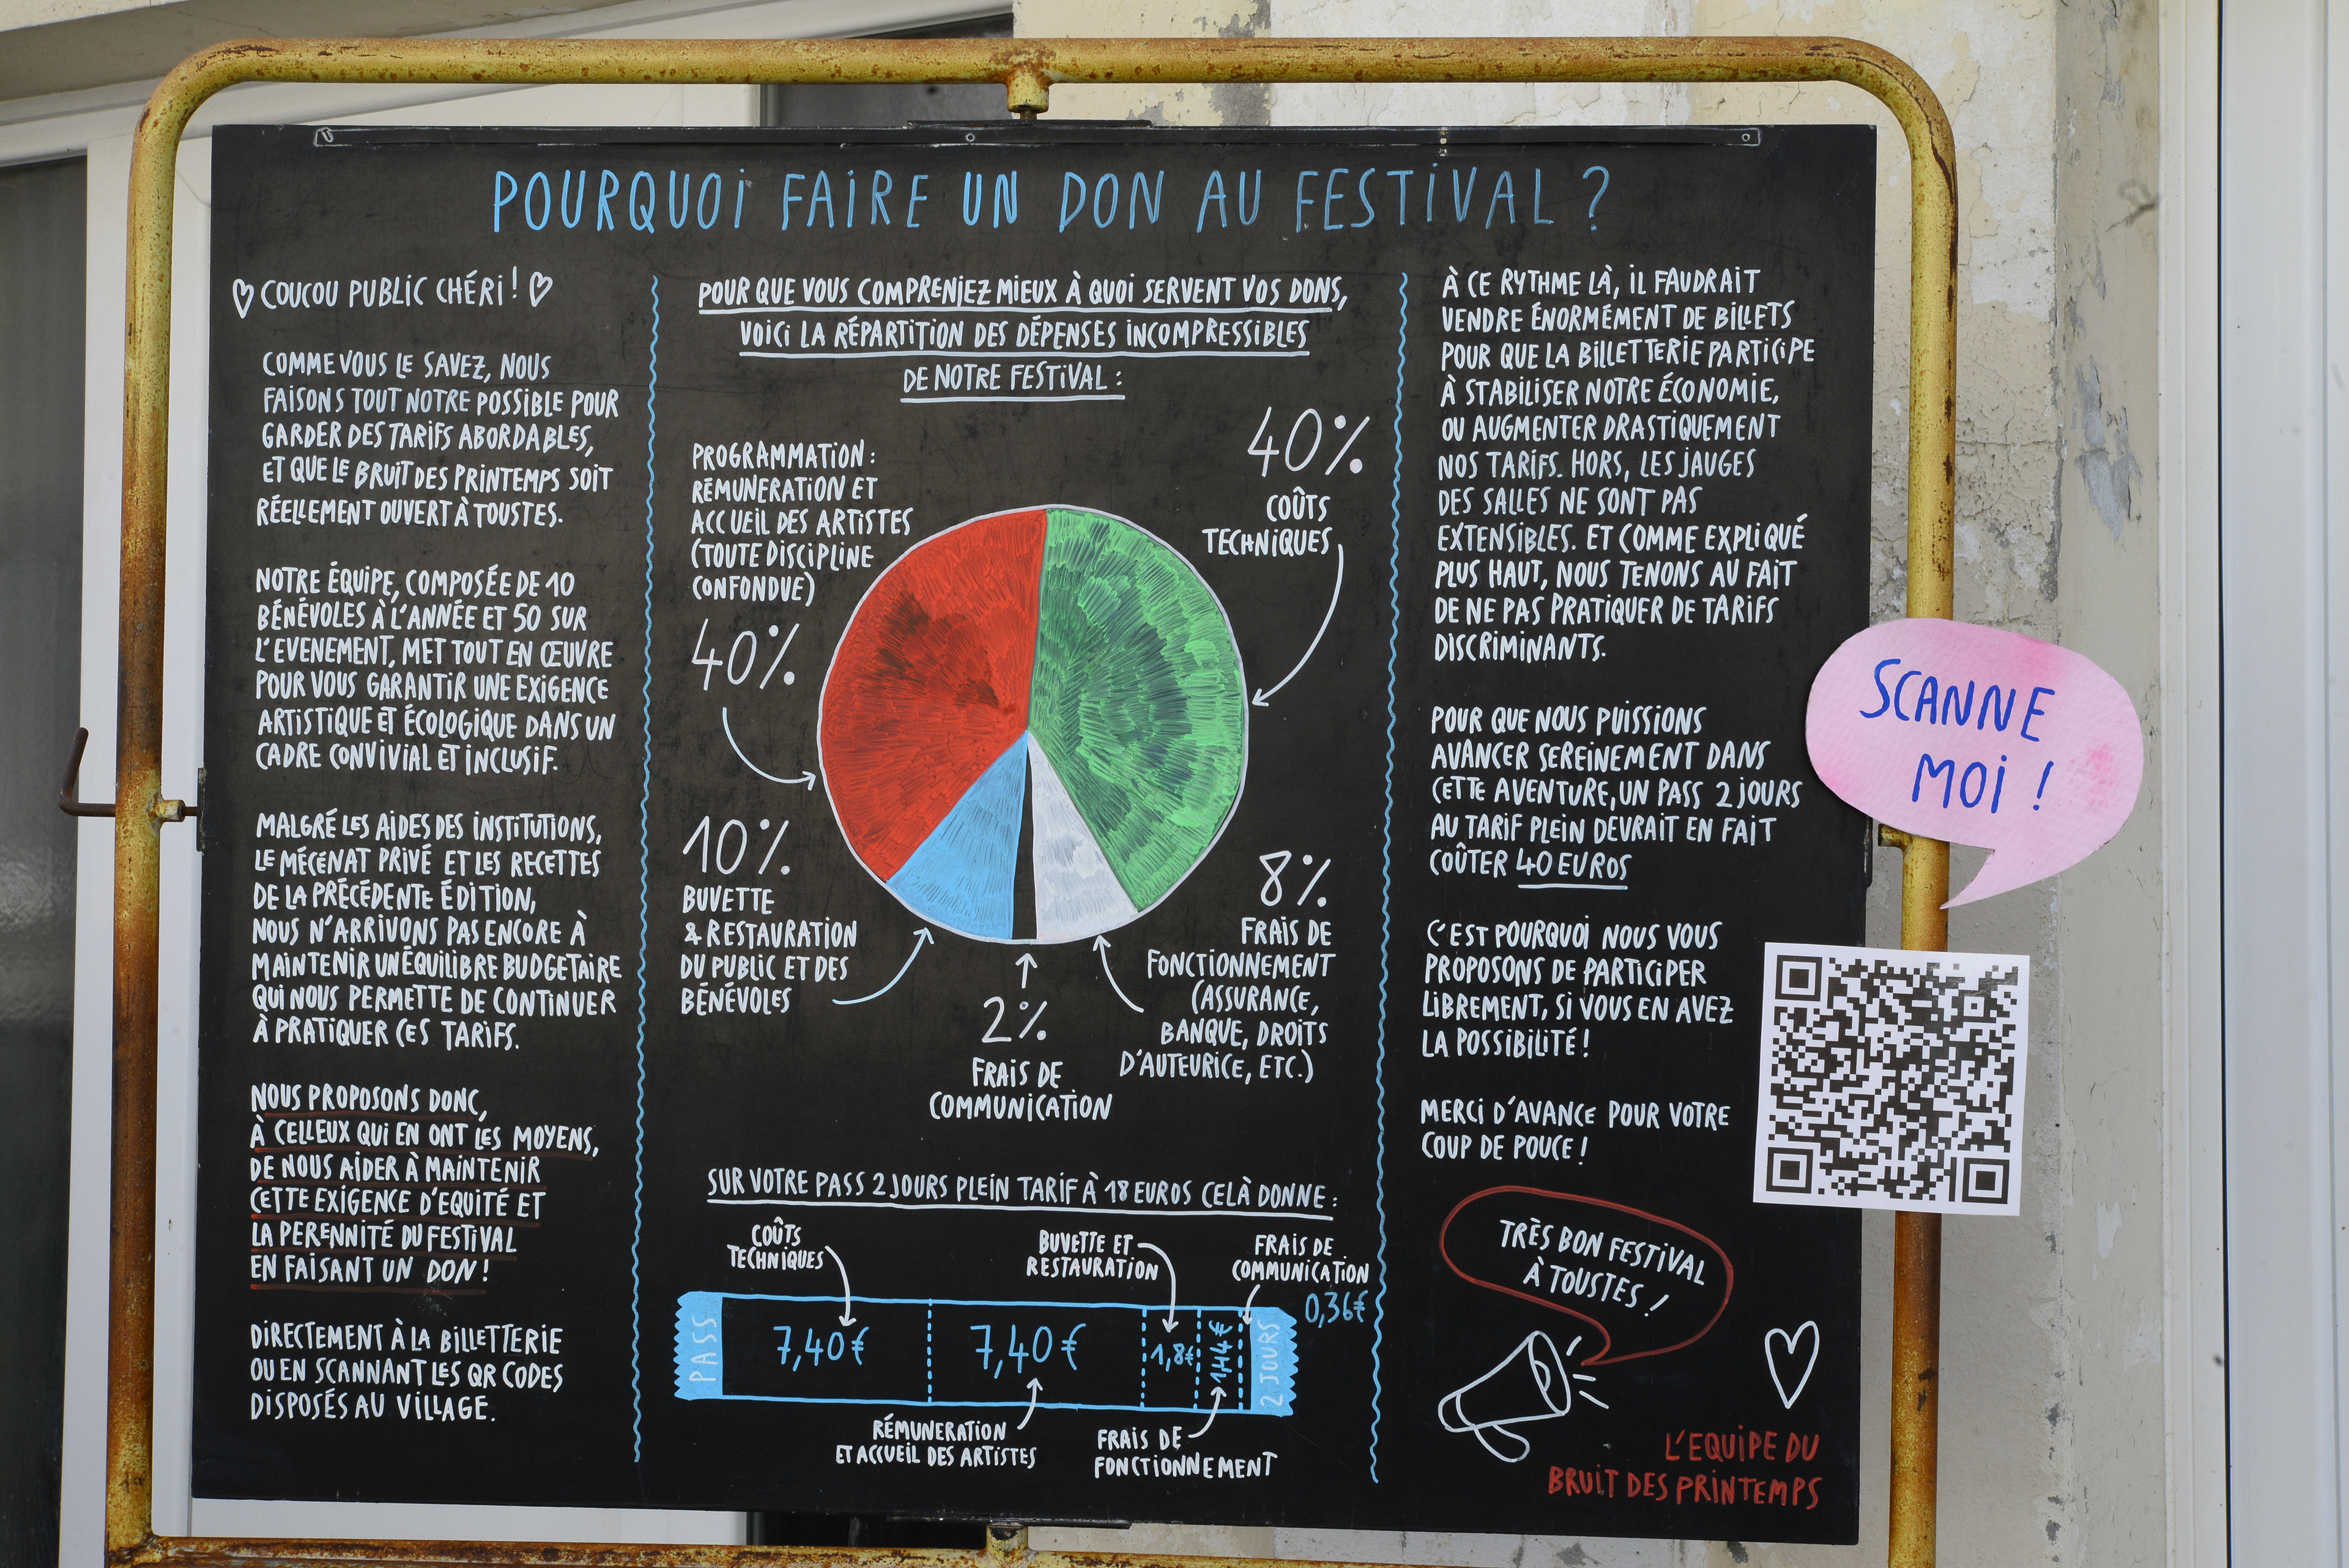 POURQUOI FAIRE UN DON AU FESTIVAL ?
COUCOU PUBLIC CHÉRI !
COMME VOUS LE SAVEZ, NOUS
FAISONS TOUT NOTRE POSSIBLE POUR
GARDER DES TARIFS ABORDABLES,
ET QUE LE BRUIT DES PRINTEMPS SOIT
RÉELLEMENT OUVERT À TOUSTES.
NOTRE ÉQUIPE, COMPOSÉE DE 10
BÉNÉVOLES À L'ANNÉE ET 50 SUR
L'EVENEMENT, MET TOUT EN ŒUVRE
POUR VOUS GARANTIR UNE EXIGENCE
ARTISTIQUE ET ÉCOLOGIQUE DANS UN
CADRE CONVIVIAL ET INCLUSIF.
MALGRÉ LES AIDES DES INSTITUTIONS,
LE MÉCÉNAT PRIVÉ ET LES RECETTES
DE LA PRÉCÉDENTE ÉDITION,
NOUS N'ARRIVONS PAS ENCORE À
MAINTENIR UN ÉQUILIBRE BUDGETAIRE
QUI NOUS PERMETTE DE CONTINUER
À PRATIQUER CES TARIFS.
NOUS PROPOSONS DONC,
À CELLEUX QUI EN ONT LES MOYENS,
DE NOUS AIDER À MAINTENIR
CETTE EXIGENCE D'EQUITÉ ET
LA PERENNITÉ DU FESTIVAL
EN FAISANT UN DON !
DIRECTEMENT À LA BILLETTERIE
OU EN SCANNANT LES QR CODES
DISPOSÉS AU VILLAGE.
POUR QUE VOUS COMPRENIEZ MIEUX À QUOI SERVENT VOS DONS,
VOICI LA RÉPARTITION DES DÉPENSES INCOMPRESSIBLES
DE NOTRE FESTIVAL :
PROGRAMMATION :
RÉMUNERATION ET
ACCUEIL DES ARTISTES
(TOUTE DISCIPLINE
CONFONDUE)
40%
40%
COÛTS
TECHNIQUES
10%
BUVETTE
& RESTAURATION
DU PUBLIC ET DES
BÉNÉVOLES
2%
FRAIS DE
COMMUNICATION
8%
FRAIS DE
FONCTIONNEMENT
(ASSURANCE,
BANQUE, DROITS
D'AUTEURICE, ETC.)
SUR VOTRE PASS 2 JOURS PLEIN TARIF À 18 EUROS CELÀ DONNE :
COÛTS
TECHNIQUES
BUVETTE ET
RESTAURATION
FRAIS DE
COMMUNICATION
0,36€
PASS
7,40€
7,40€
1,8€
1,44€
2 JOURS
RÉMUNERATION
ET ACCUEIL DES ARTISTES
FRAIS DE
FONCTIONNEMENT
À CE RYTHME LÀ, IL FAUDRAIT
VENDRE ÉNORMÉMENT DE BILLETS
POUR QUE LA BILLETTERIE PARTICIPE
À STABILISER NOTRE ÉCONOMIE,
OU AUGMENTER DRASTIQUEMENT
NOS TARIFS. HORS, LES JAUGES
DES SALLES NE SONT PAS
EXTENSIBLES. ET COMME EXPLIQUÉ
PLUS HAUT, NOUS TENONS AU FAIT
DE NE PAS PRATIQUER DE TARIFS
DISCRIMINANTS.
POUR QUE NOUS PUISSIONS
AVANCER SEREINEMENT DANS
CETTE AVENTURE, UN PASS 2 JOURS
AU TARIF PLEIN DEVRAIT EN FAIT
COÛTER 40 EUROS
C'EST POURQUOI NOUS VOUS
PROPOSONS DE PARTICIPER
LIBREMENT, SI VOUS EN AVEZ
LA POSSIBILITÉ !
MERCI D'AVANCE POUR VOTRE
COUP DE POUCE !
TRÈS BON FESTIVAL
À TOUSTES !
L'EQUIPE DU
BRUIT DES PRINTEMPS
SCANNE
MOI !